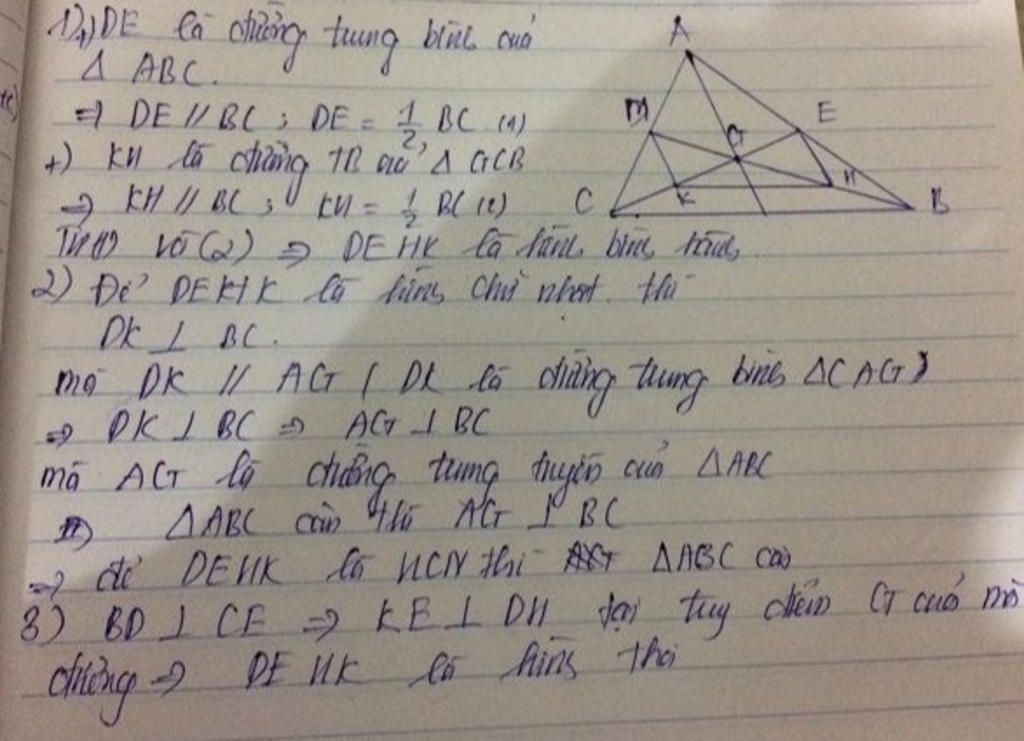 1) +) DE là đường trung bình của
Δ ABC.
⇒ DE // BC ; DE = 1/2 BC (1)
+) KH là đường TB của Δ GCB
⇒ KH // BC ; KH = 1/2 BC (2)
Từ (1) và (2) ⇒ DEHK là hình bình hành.
2) Để DEHK là hình chữ nhật thì
DK ⊥ BC.
mà DK // AG ( DK là đường trung bình ΔCAG )
⇒ DK ⊥ BC ⇒ AG ⊥ BC
mà AG là đường trung tuyến của ΔABC
⇒ ΔABC cân thì AG ⊥ BC
⇒ để DEHK là HCN thì ΔABC cân
3) BD ⊥ CE ⇒ KE ⊥ DH tại điểm G của mỗi
đường ⇒ DEHK là hình thoi
A
E
G
H
K
C
B